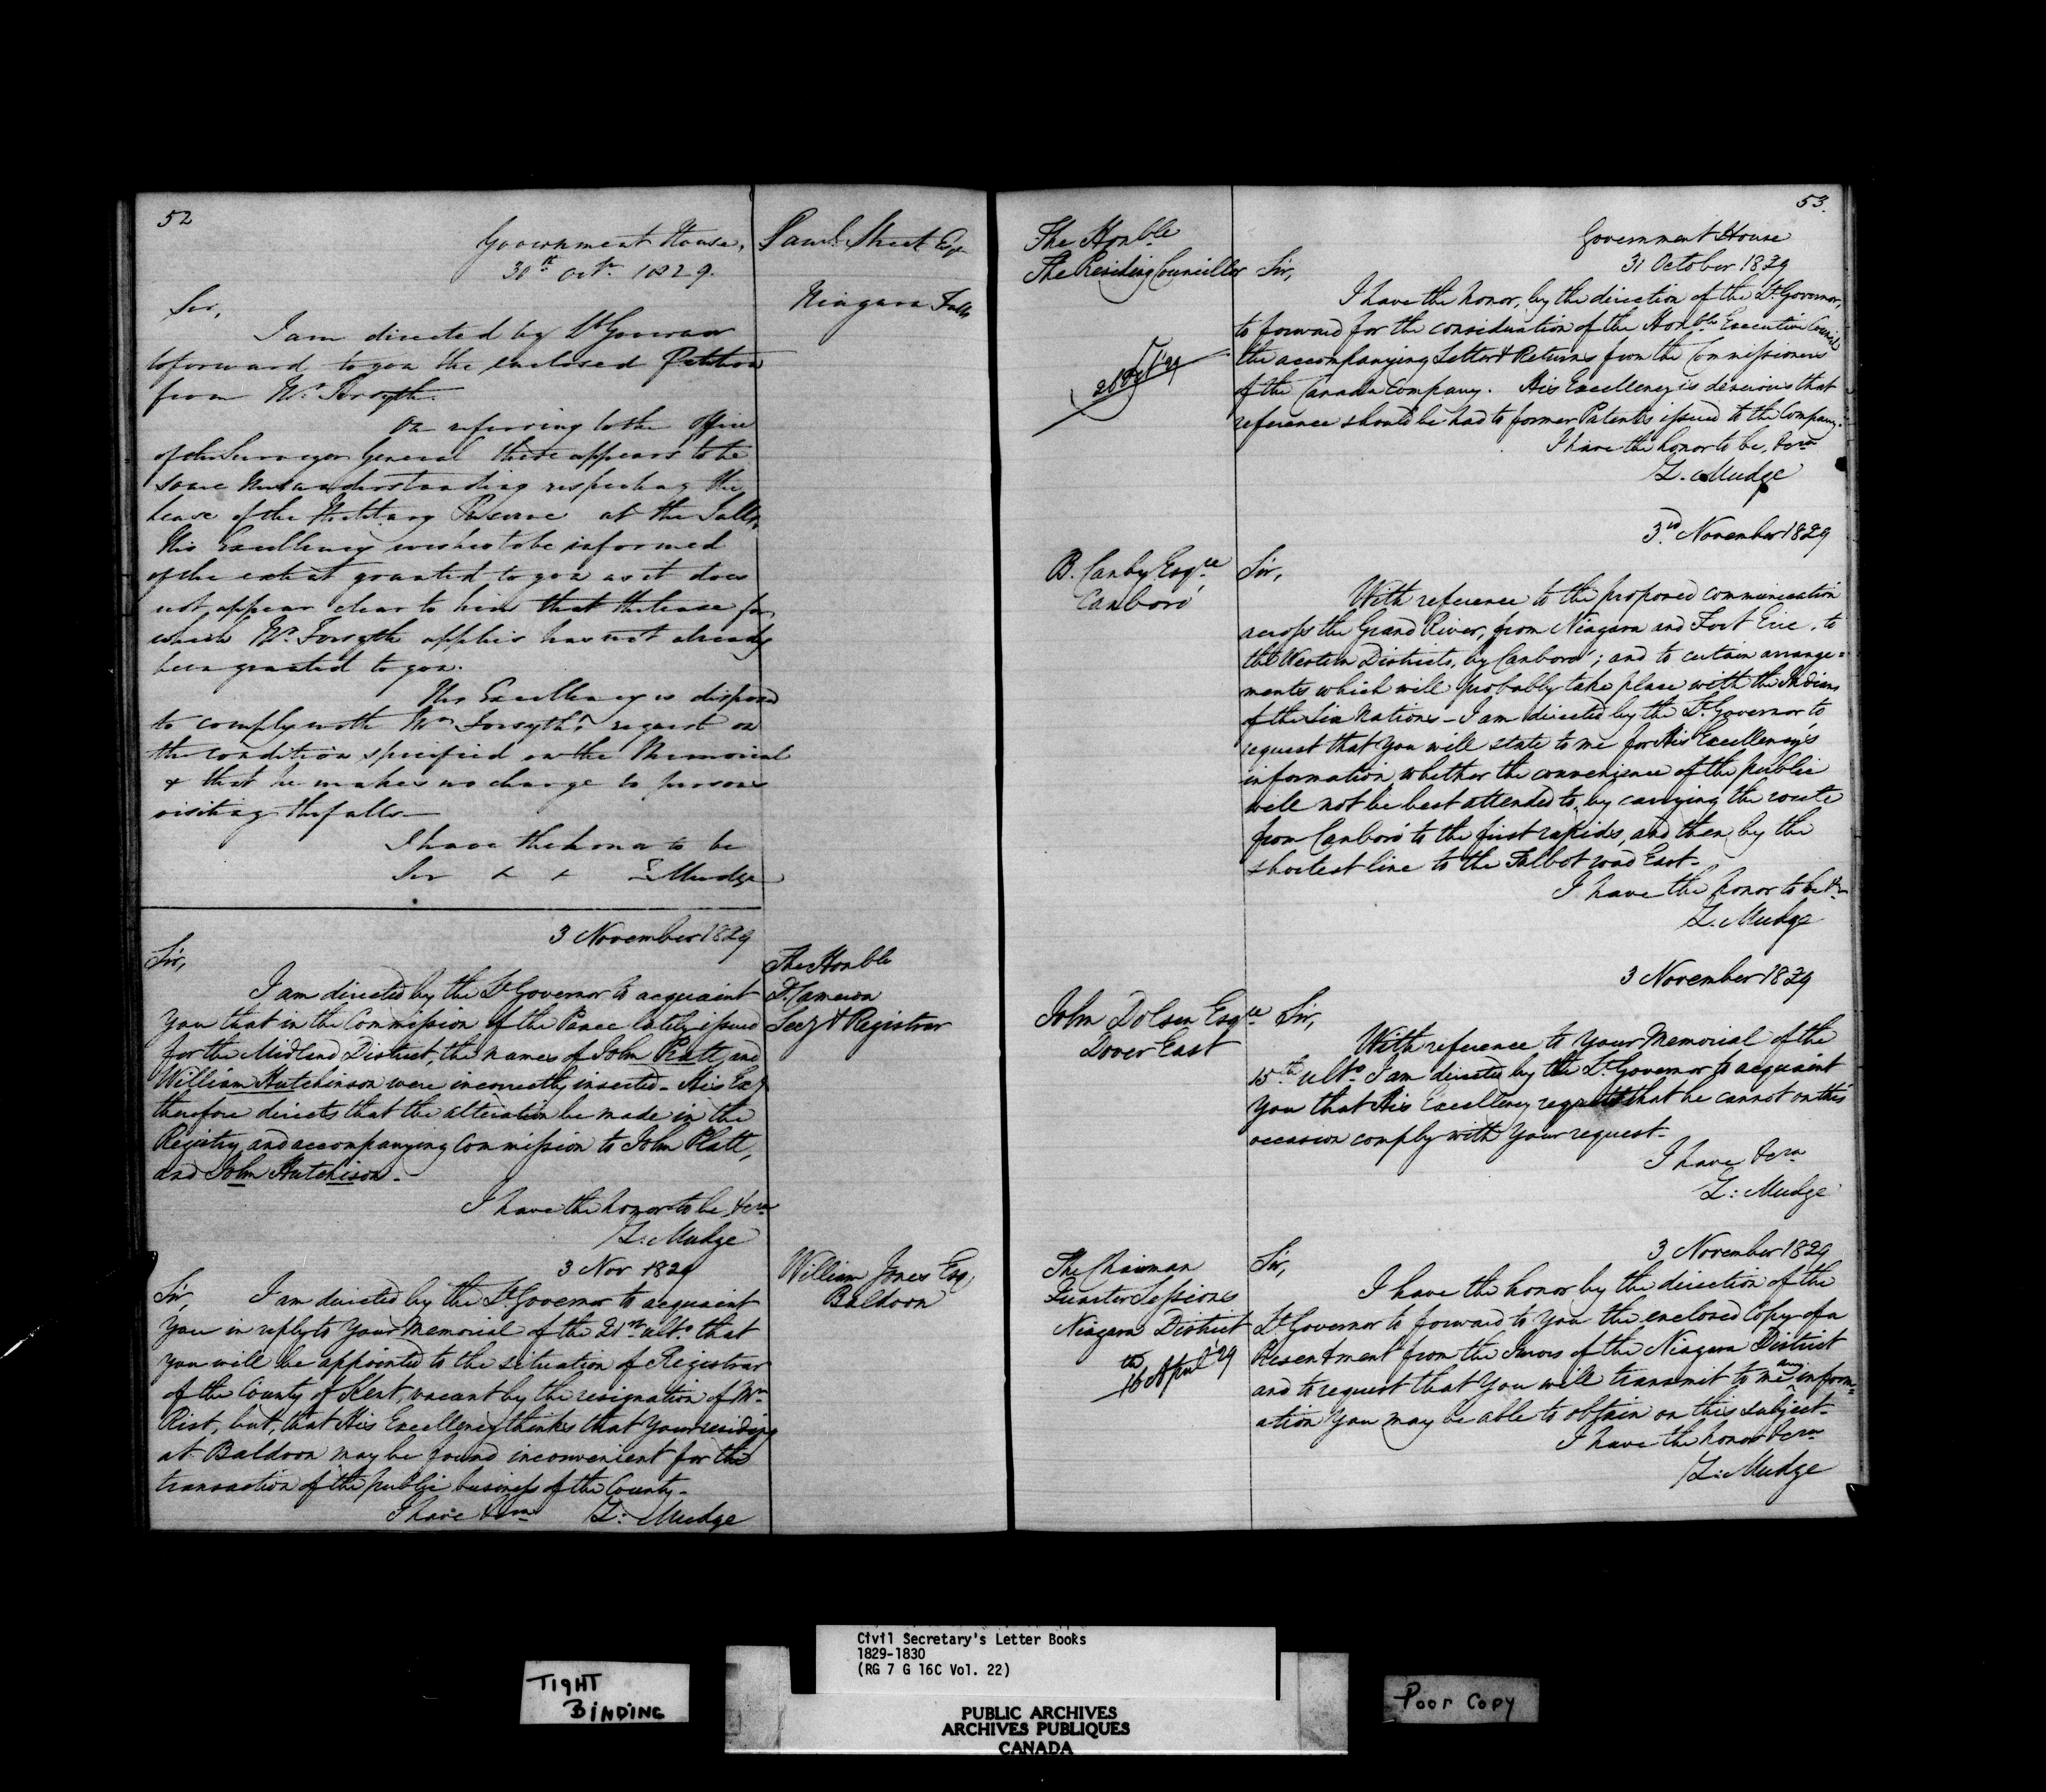 52
Government House,
30th Octr. 1829.
Saml. Street Esqr
Niagara Falls
Sir,
I am directed by Lt Governor
to forward to you the enclosed Petition
from Mr. Forsyth.
On referring to the Office
of the Surveyor General there appears to be
some Misunderstanding respecting the
lease of the Military Reserve at the Falls,
His Excellency wishes to be informed
of the extent granted to you as it does
not, appear clear to him that the lease for
which Mr. Forsyth applies has not already
been granted to you.
His Excellency is disposed
to comply with Mr Forsyth's request on
the condition specified on the Memorial
& that he makes no charge to persons
visiting the falls—
I have the honor to be
Sir Z Mudge
3 November 1829
The Honble
D. Cameron
Secy & Registrar
Sir,
I am directed by the Lt Governor to acquaint
You that in the Commission of the Peace lately issued
for the Midland District, the names of John Pratt, and
William Hutchinson were incorrectly inserted. His Excy
therefore directs that the alteration be made in the
Registry, and accompanying Commission to John Platt,
and John Hutchison.
I have the honor to be, &cra
Z. Mudge
3 Nov 1829
William Jones Esq,
Baldoon
Sir, I am directed by the Lt. Governor to acquaint
You in reply to Your Memorial of the 21st ulto. that
you will be appointed to the situation of Registrar
of the County of Kent, vacant by the resignation of Mr.
Rist, but, that His Excellency thinks that Your residing
at Baldoon may be found inconvenient for the
transaction of the public business of the County.
I have &cra Z: Mudge
53.
The Honble
The Presiding Councillor
Government House
31 October 1829
Sir,
I have the honor, by the direction of the Lt. Governor,
to forward for the consideration of the Honble Executive Council
the accompanying Letter & Returns from the Commissioners
of the Canada Company. His Excellency is desirous that
reference should be had to former Patents issued to the Company.
I have the honor to be, &cra
Z. Mudge
3rd. November 1829
B. Canby Esqre.
Canboro'
Sir,
With reference to the proposed communication
across the Grand River, from Niagara and Fort Erie, to
the Western Districts, by Canboro'; and to certain arrange=
ments which will probably take place with the Indians
of the Six Nations – I am directed by the Lt. Governor to
request that You will state to me for His Excellency's
information whether the convenience of the public
will not be best attended to, by carrying the route
from Canboro' to the first rapids, and then by the
shortest line to the Talbot road East.
I have the honor to be &ra
Z. Mudge
3 November 1829
John Dolsen Esqre.
Dover East
Sir,
With reference to Your Memorial of the
15th. ulto. I am directed by the Lt. Governor to acquaint
You that His Excellency regrets that he cannot on this
occasion comply with Your request.
I have &cra
Z: Mudge
3 November 1829
The Chairman
Quarter Sessions
Niagara District
16th April '29
Sir,
I have the honor by the direction of the
Lt. Governor to forward to You the enclosed Copy of a
Presentment from the Jurors of the Niagara District
and to request that You will transmit to me any inform=
ation You may be able to obtain on this subject.
I have the honor &cra
Z: Mudge
Civil Secretary's Letter Books
1829-1830
(RG 7 G 16C Vol. 22)
TIGHT
BINDING
Poor Copy
PUBLIC ARCHIVES
ARCHIVES PUBLIQUES
CANADA